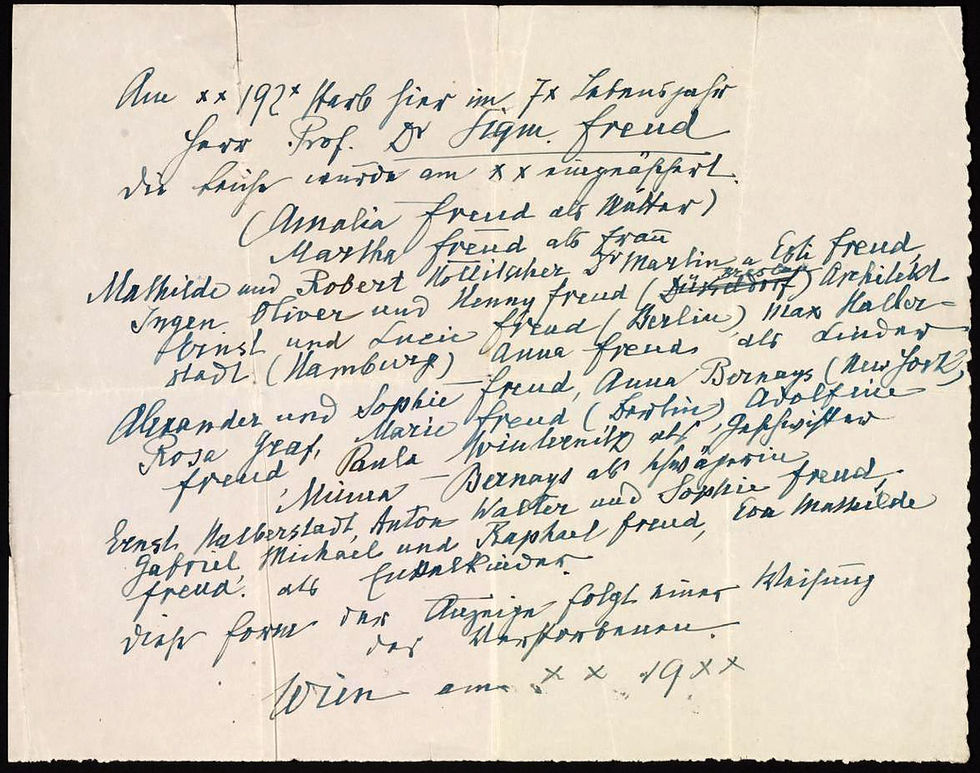 Am xx 192x starb hier im 7x Lebensjahr
Herr Prof. Dr Sigm. Freud
Die Leiche wurde am x x eingeäschert.
(Amalia Freud als Mutter)
Martha Freud als Frau
Mathilde und Robert Hollitscher Dr Martin u Esti Freud,
Ingen. Oliver und Henny Freud (Düsseldorf) Architekt
Ernst und Lucie Freud (Berlin) Max Halber-
stadt (Hamburg) Anna Freud als Kinder
Alexander und Sophie Freud, Anna Bernays (New York),
Rosa Graf, Marie Freud (Berlin) Adolfine
Freud Paula Winternitz als Geschwister
Minna Bernays als Schwägerin
Ernst Halberstadt, Anton Walter und Sophie Freud,
Gabriel Michael und Raphael Freud, Eva Mathilde
Freud. als Enkelkinder.
Diese Form der Anzeige folgt einer Weisung
des Verstorbenen.
Wien am x x 19xx